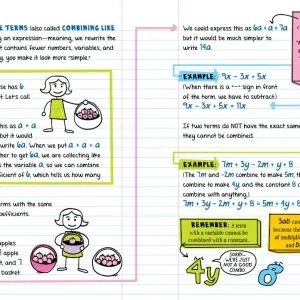 E TERMS (also called COMBINING LIKE
y an expression—meaning, we rewrite the
t contains fewer numbers, variables, and
y, you make it look more "simple."
se has 6
t. Let's call
this as a + a
t it would
write 6a. When we put a + a + a
her to get 6a, we are collecting like
e variable a, so we can combine
ficient of 6, which tells us how many
erms with the same
oefficients.
apples
apple
t, and 7
basket
We could express this as 6a + a + 7a
but it would be much simpler to
write 14a.
EXAMPLE: 9x - 3x + 5x
(When there is a "-" sign in front
of the term, we have to subtract.)
9x - 3x + 5x = 11x
If two terms do NOT have the exact same
they cannot be combined.
EXAMPLE: 7m + 3y - 2m + y + 8
(The 7m and -2m combine to make 5m, t
combine to make 4y, and the constant 8 c
combine with anything.)
7m + 3y - 2m + y + 8 = 5m + 4y + 8
REMEMBER: A term
with a variable cannot be
combined with a constant.
3ab can
because the
of multiplic
and b
SORRY...
WE'RE JUST
NOT A GOOD
COMBO.
4y
8